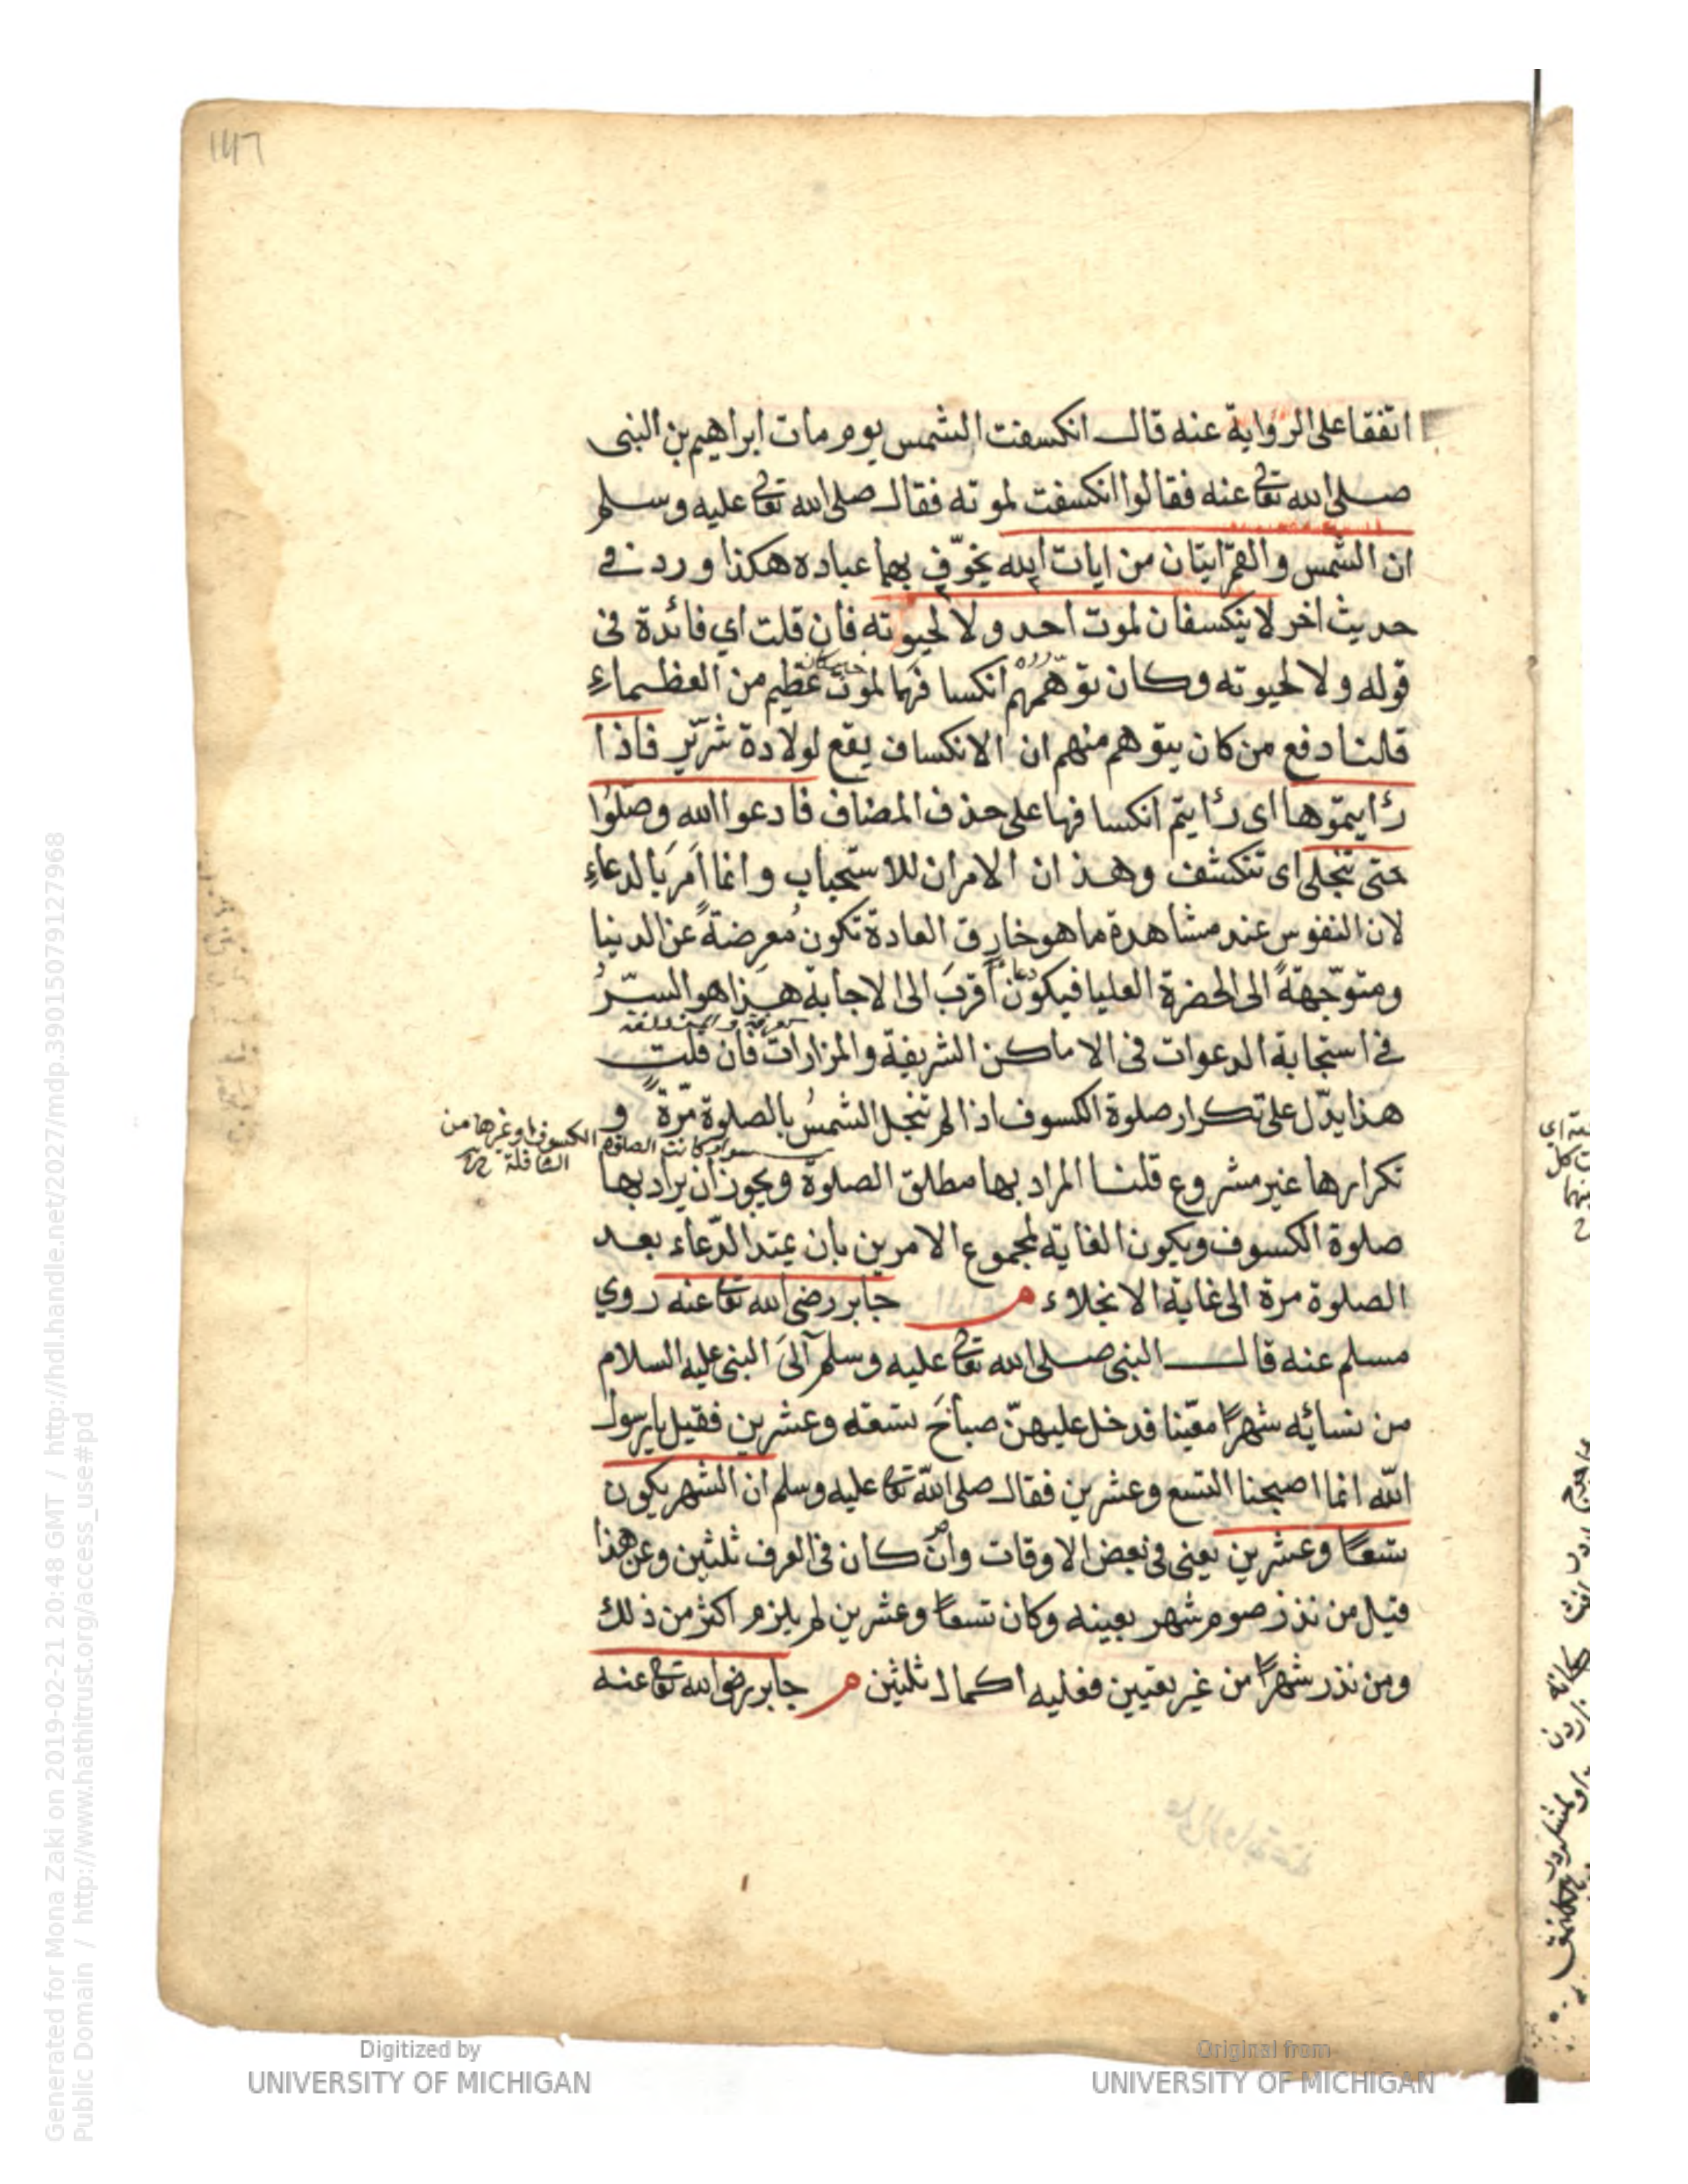 ١٤٦
اتفقا على الرواية عنه قال انكسفت الشمس يوم مات ابراهيم بن النبى
صلى الله تعالى عنه فقالوا انكسفت لموته فقال صلى الله تعالى عليه وسلم
ان الشمس والقمر ايتان من ايات الله يخوّف بهما عباده هكذا ورد فى
حديث اخر لا ينكسفان لموت احد ولا لحيوته فان قلت اي فائدة فى
قوله ولا لحيوته وكان توهّمهم انكسافهما لموت عظيم من العظماء
قلنا دفع من كان يتوهم منهم ان الانكساف يقع لولادة شرّير فاذا
رأيتموها اى رأيتم انكسافها على حذف المضاف فادعوا الله وصلّوا
حتى تنجلى اى تنكشف وهذان الامران للاستحباب وانما اَمَرَ بالدعاء
لان النفوس عند مشاهدة ما هو خارق العادة تكون مُعرضةً عن الدنيا
ومتوجّهةً الى الحضرة العليا فيكون اقربَ الى الاجابة هذا هو السرّ
فى استجابة الدعوات فى الاماكن الشريفة والمزارات فان قلت
هذا يدلّ على تكرار صلوة الكسوف اذا لم تنجل الشمسُ بالصلوة مرّةً و
سواء كانت الصلوة الكسوف او غيرها من
النافلة
تكرارها غير مشروع قلنا المراد بها مطلق الصلوة ويجوز ان يراد بها
صلوة الكسوف ويكون الغاية لمجموع الامرين بان يمتد الدّعاء بعد
الصلوة مرة الى غاية الانجلاء م جابر رضى الله تعالى عنه روي
مسلم عنه قال النبى صلى الله تعالى عليه وسلم آلَىَ النبى عليه السلام
من نسائه شهرًا معيّنا فدخل عليهنّ صباحَ تسعة وعشرين فقيل يا رسول
الله انما اصبحنا التسع وعشرين فقال صلى الله تعالى عليه وسلم ان الشهر يكون
تسعًا وعشرين يعنى فى بعض الاوقات وان كان فى العرف ثلثين وعن هذا
قيل من نذر صوم شهر بعينه وكان تسعًا وعشرين لم يلزم اكثر من ذلك
ومن نذر شهرًا من غير تعيين فعليه اكمال ثلثين م جابر رضى الله تعالى عنه
Generated for Mona Zaki on 2019-02-21 20:48 GMT / http://hdl.handle.net/2027/mdp.39015079127968
Public Domain / http://www.hathitrust.org/access_use#pd
Digitized by
UNIVERSITY OF MICHIGAN
Original from
UNIVERSITY OF MICHIGAN